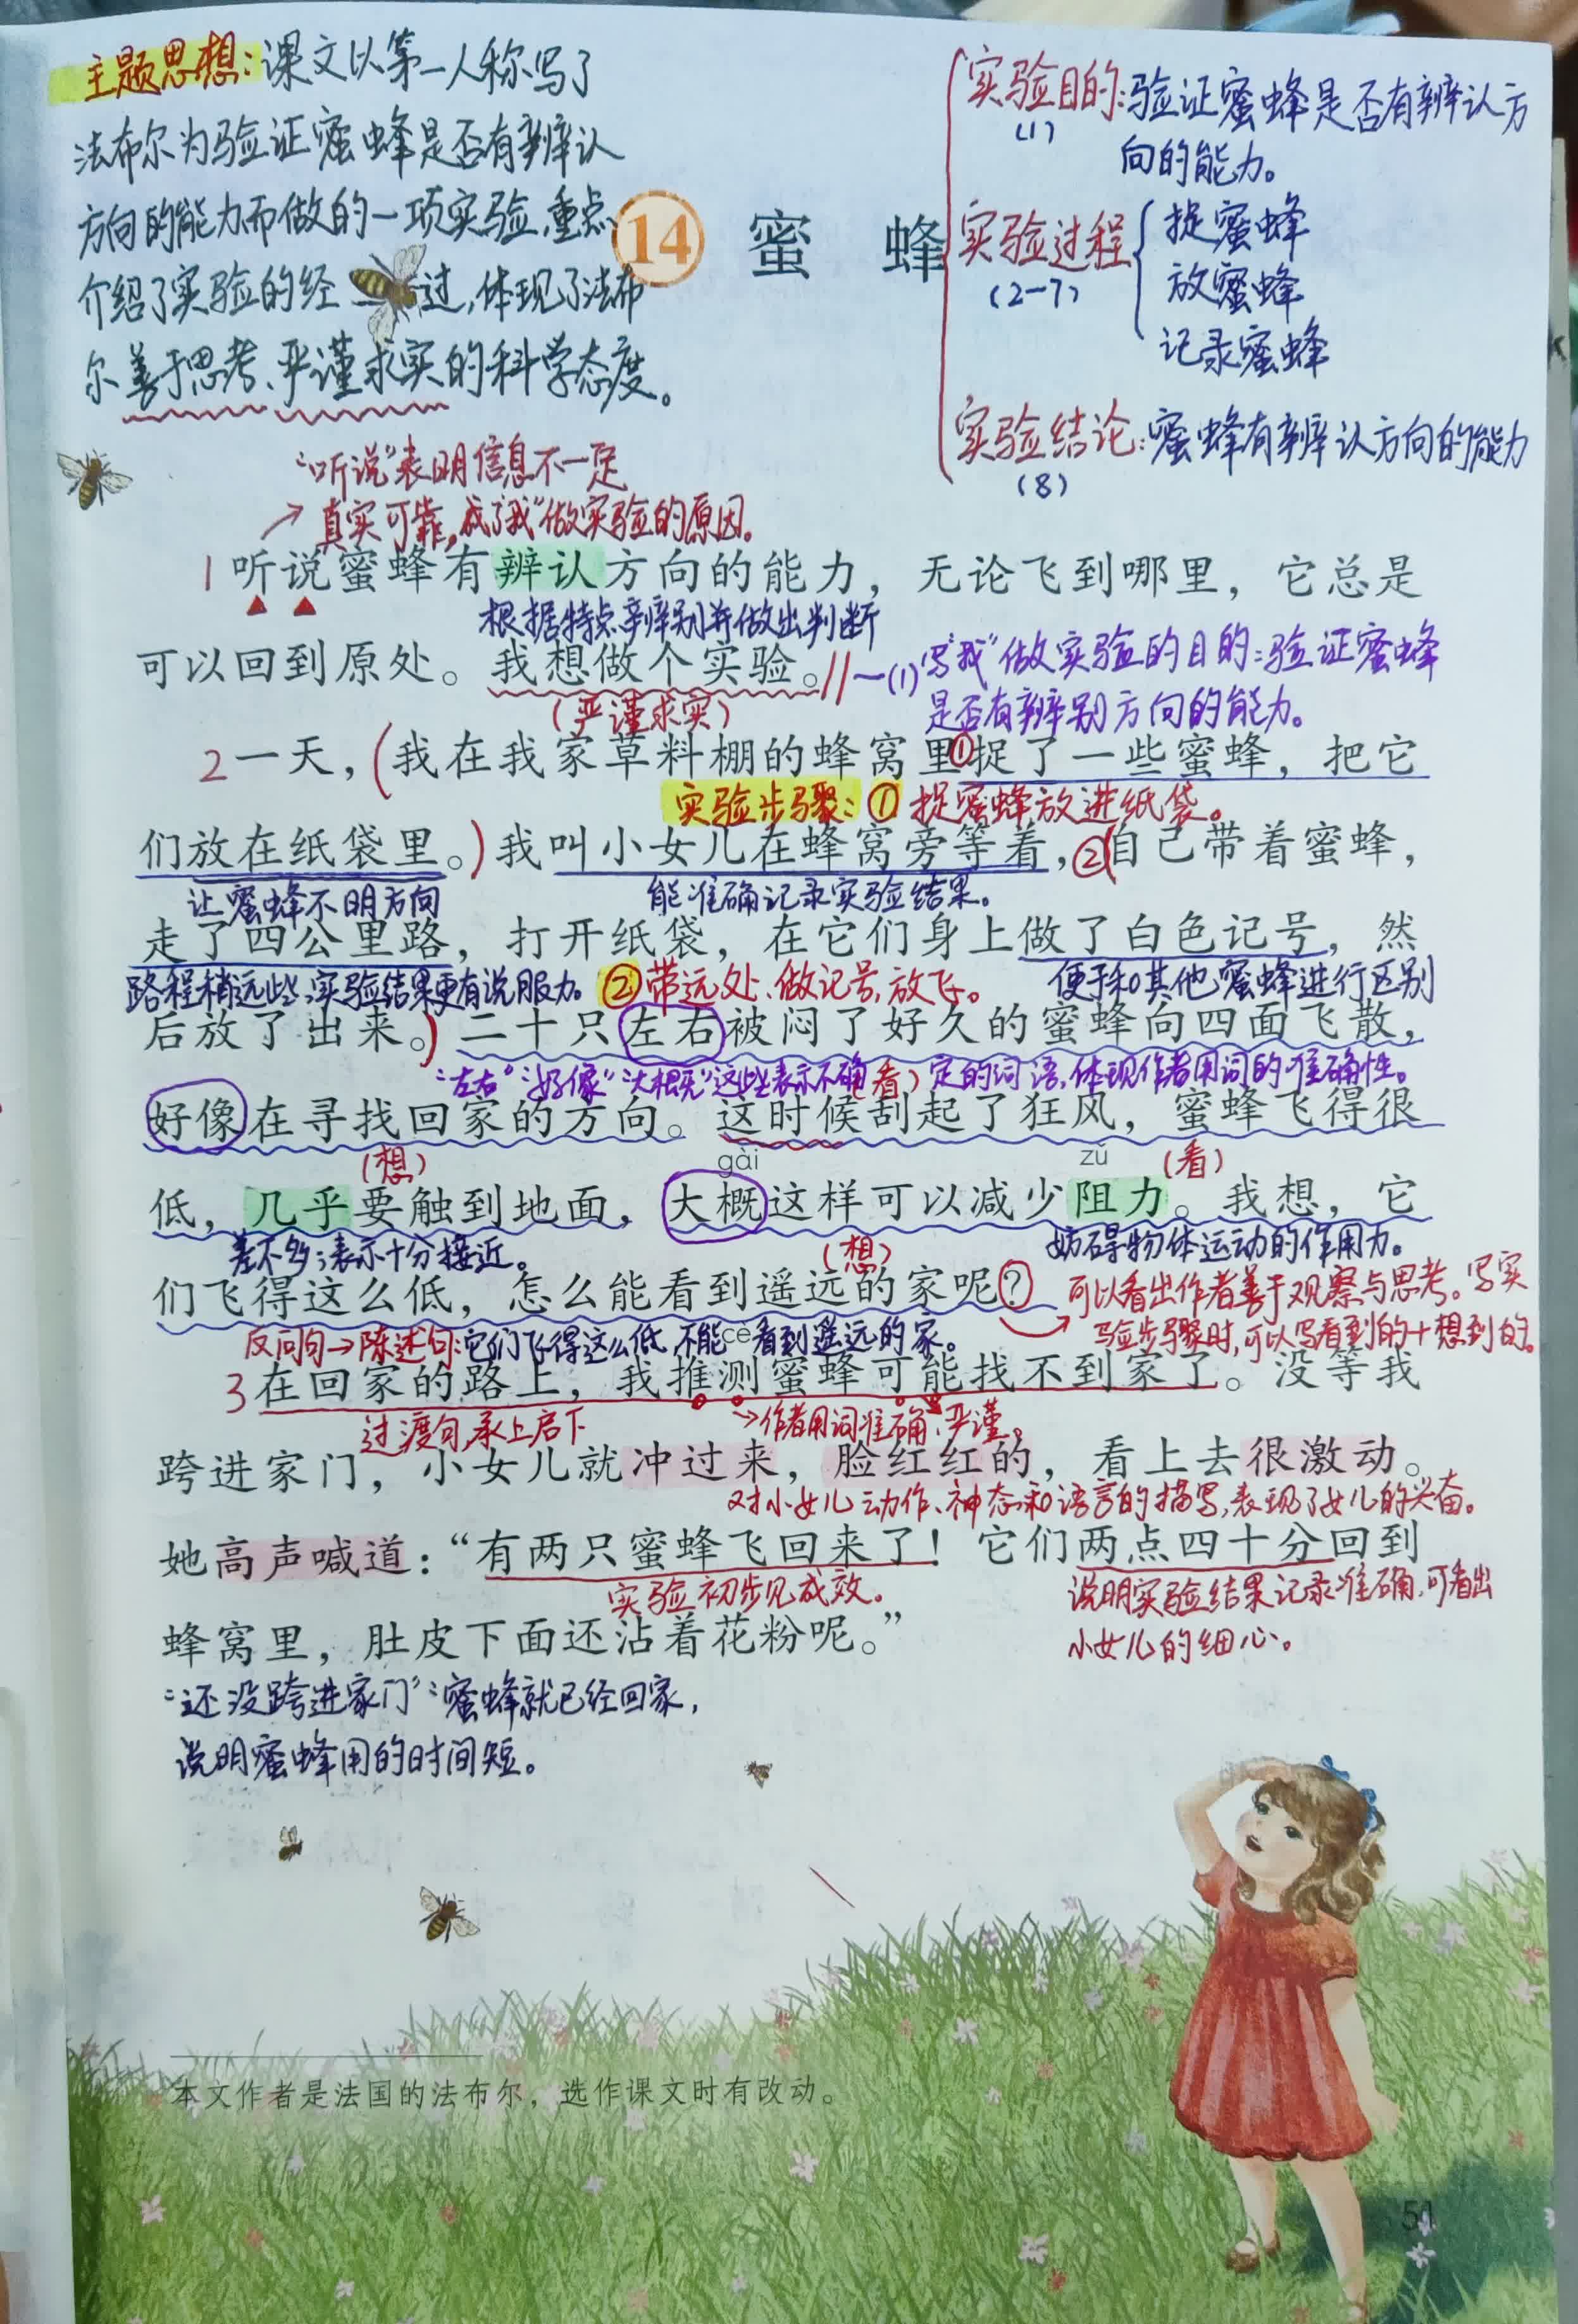 主题思想:课文以第一人称写了
法布尔为验证蜜蜂是否有辨认
方向的能力而做的一项实验,重点
介绍了实验的经过,体现了法布
尔善于思考、严谨求实的科学态度。
14 蜜蜂
实验目的:验证蜜蜂是否有辨认方
(1)
向的能力。
实验过程
(2-7)
捉蜜蜂
放蜜蜂
记录蜜蜂
实验结论:蜜蜂有辨认方向的能力
(8)
“听说”表明信息不一定
→真实可靠,成了“我”做实验的原因。
1听说蜜蜂有辨认方向的能力，无论飞到哪里，它总是
根据特点辨别并做出判断
可以回到原处。我想做个实验。//一(1)写“我”做实验的目的:验证蜜蜂
是否有辨别方向的能力。
(严谨求实)
2一天，(我在我家草料棚的蜂窝里①捉了一些蜜蜂，把它
实验步骤:① 捉蜜蜂放进纸袋。
们放在纸袋里。)我叫小女儿在蜂窝旁等着，②(自己带着蜜蜂，
让蜜蜂不明方向 能准确记录实验结果。
走了四公里路，打开纸袋，在它们身上做了白色记号，然
路程稍远些,实验结果更有说服力。 ②带远处、做记号、放飞。 便于和其他蜜蜂进行区别
后放了出来。)二十只左右被闷了好久的蜜蜂向四面飞散，
“左右”“好像”“大概”这些表示不确(看)定的词语,体现作者用词的准确性。
好像在寻找回家的方向。这时候刮起了狂风，蜜蜂飞得很
(想) gài zǔ (看)
低，几乎要触到地面，大概这样可以减少阻力。我想，它
差不多;表示十分接近。 (想) 妨碍物体运动的作用力。
们飞得这么低，怎么能看到遥远的家呢？
可以看出作者善于观察与思考。写实
验步骤时,可以写看到的+想到的。
反问句→陈述句:它们飞得这么低,不能看到遥远的家。
cè
3在回家的路上，我推测蜜蜂可能找不到家了。没等我
过渡句,承上启下 →作者用词准确、严谨。
跨进家门，小女儿就冲过来，脸红红的，看上去很激动。
对小女儿动作、神态和语言的描写,表现了女儿的兴奋。
她高声喊道：“有两只蜜蜂飞回来了！它们两点四十分回到
实验初步见成效。 说明实验结果记录准确,可看出
小女儿的细心。
蜂窝里，肚皮下面还沾着花粉呢。”
“还没跨进家门”“蜜蜂就已经回家,
说明蜜蜂用的时间短。
本文作者是法国的法布尔，选作课文时有改动。
51